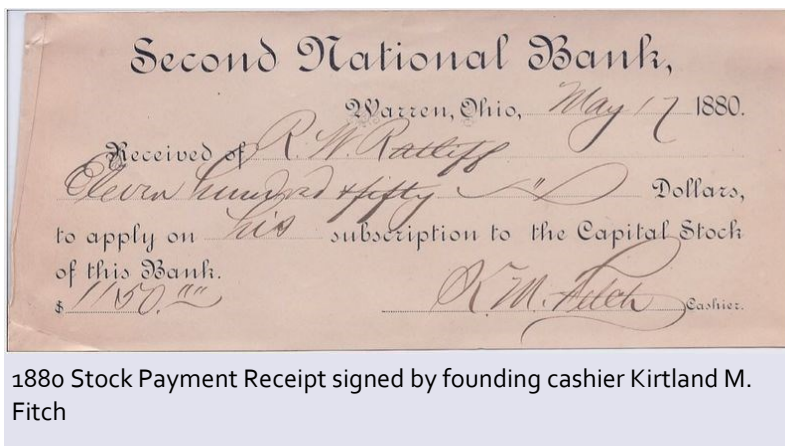 Second National Bank,
Warren, Ohio, May 17 1880.
Received of R. W. Ratliff
Eleven hundred & fifty " Dollars,
to apply on his subscription to the Capital Stock
of this Bank.
$ 1150."" K. M. Fitch Cashier.
1880 Stock Payment Receipt signed by founding cashier Kirtland M.
Fitch